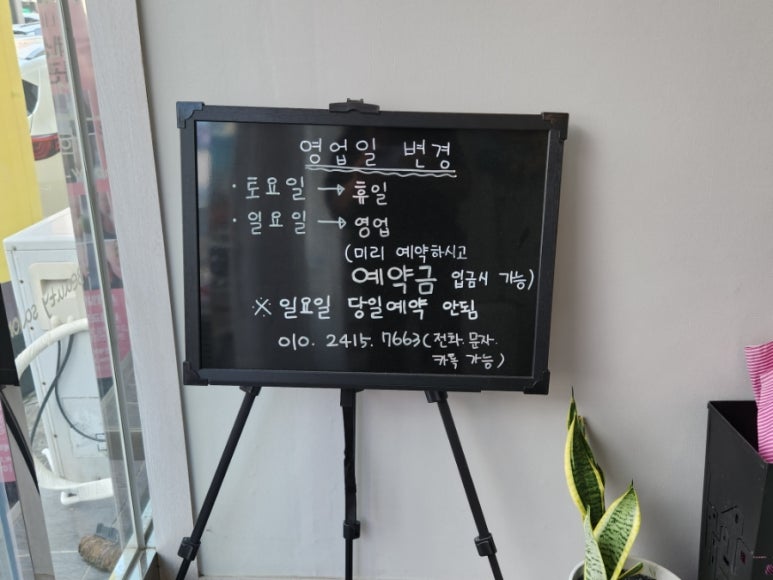 영업일 변경
· 토요일 → 휴일
· 일요일 → 영업
(미리 예약하시고
예약금 입금시 가능)
※ 일요일 당일예약 안됨
010. 2415. 7663 (전화. 문자.
카톡 가능)